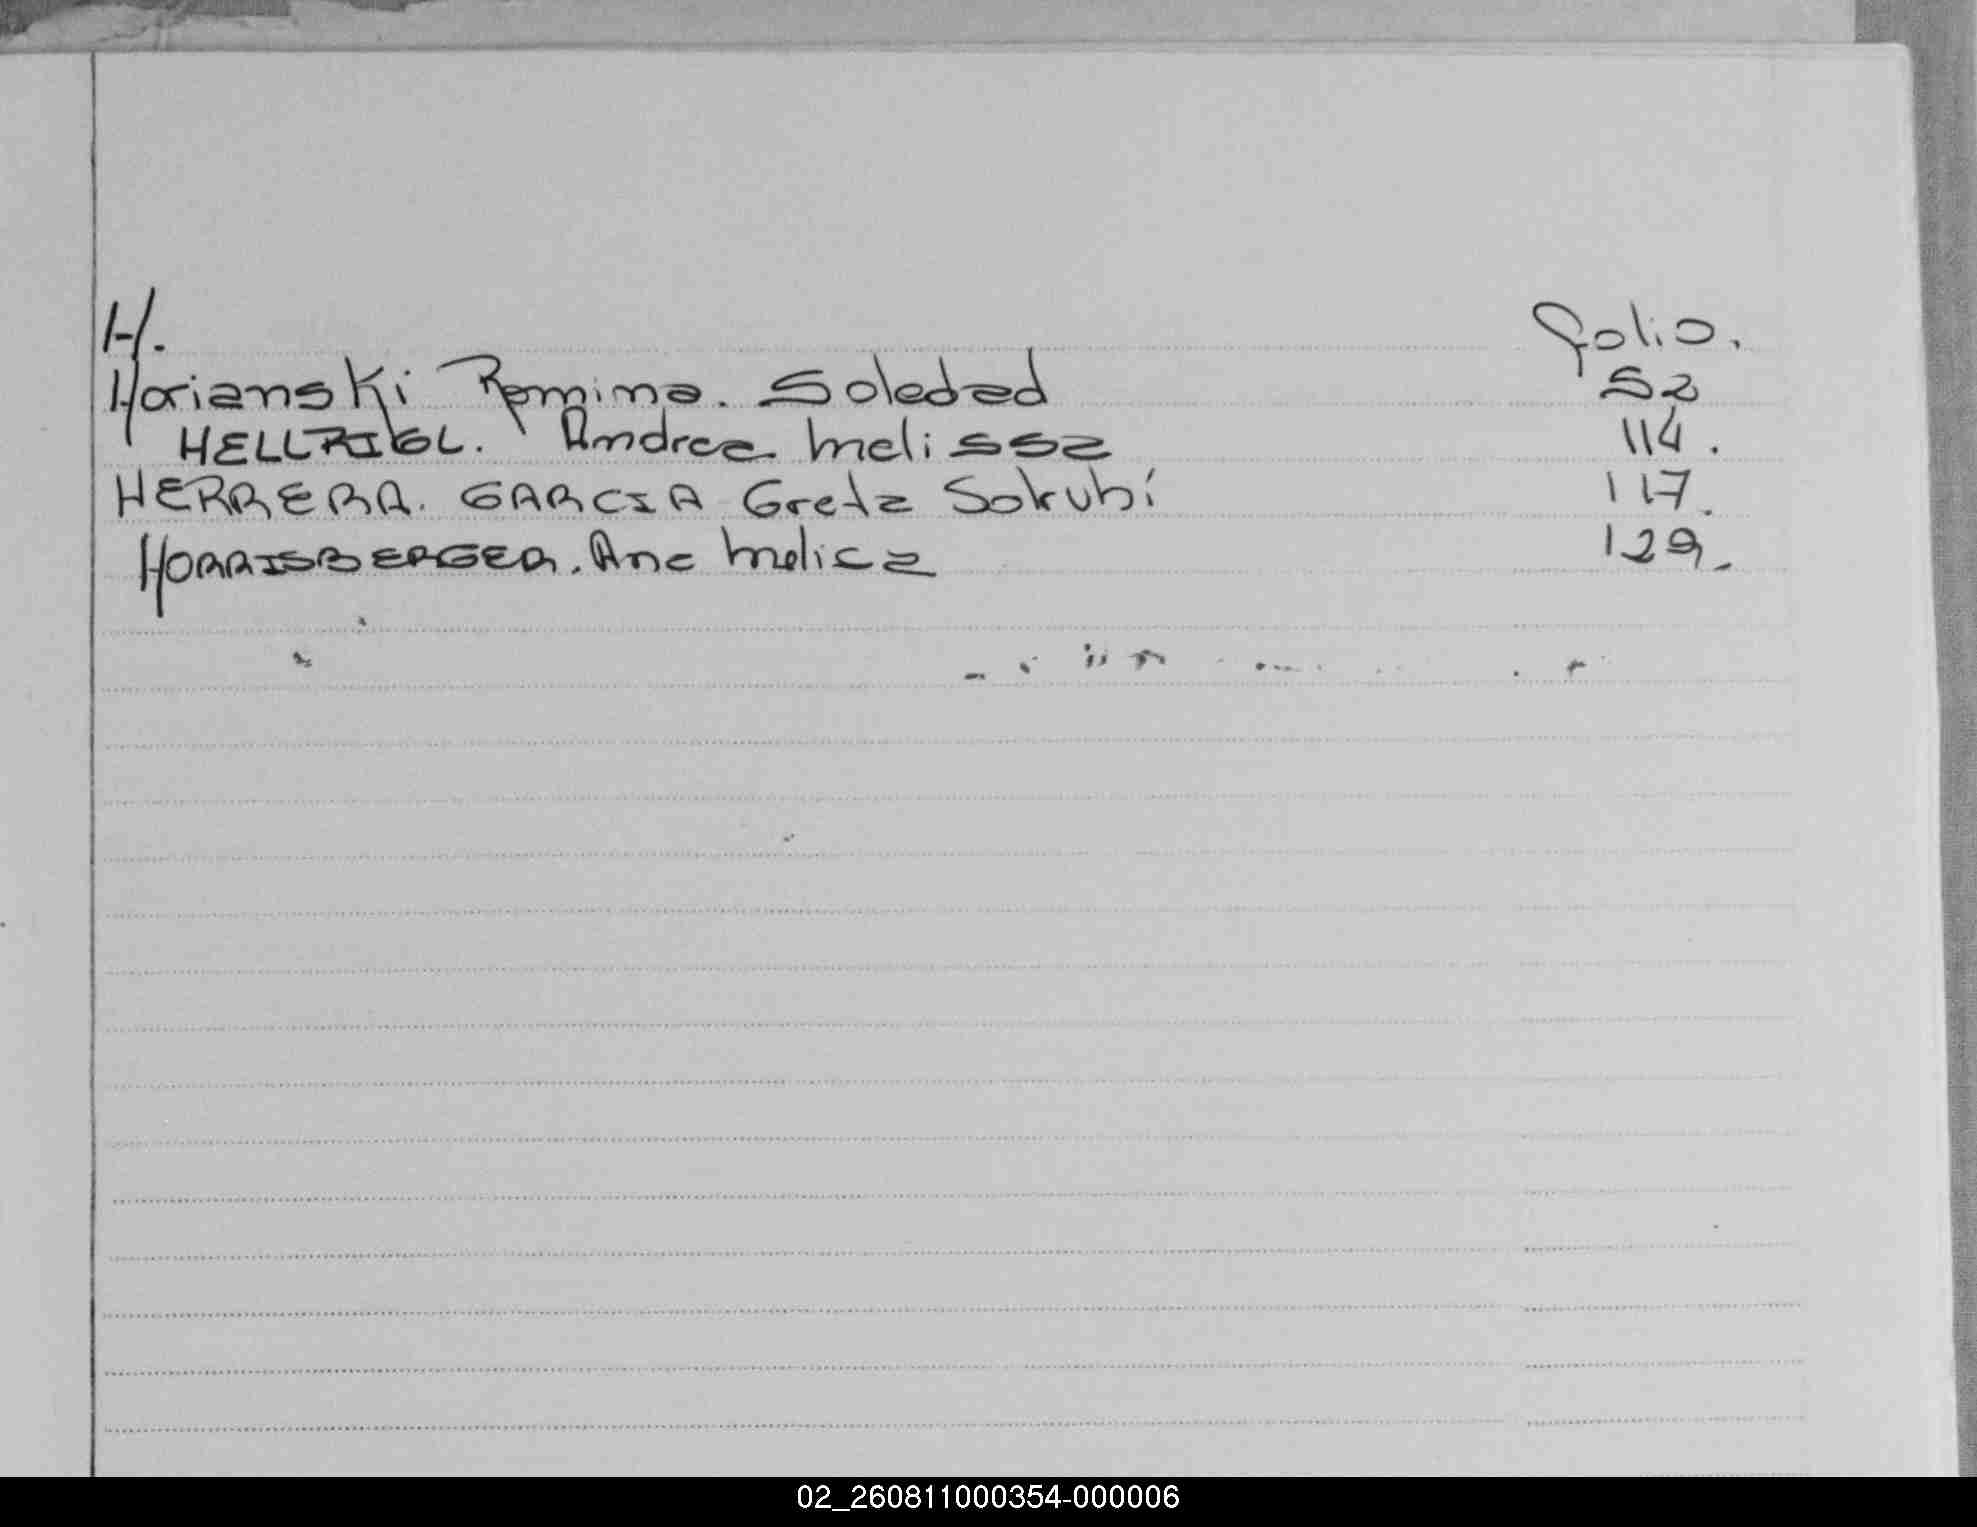 H. Folio.
Horianski Romina. Soledad 52
HELLRIGL. Andrea Melissa 114.
HERRERA. GARCIA Greta Sokubí 117.
HORRISBERGER. Ana Melica 129.
02_260811000354-000006